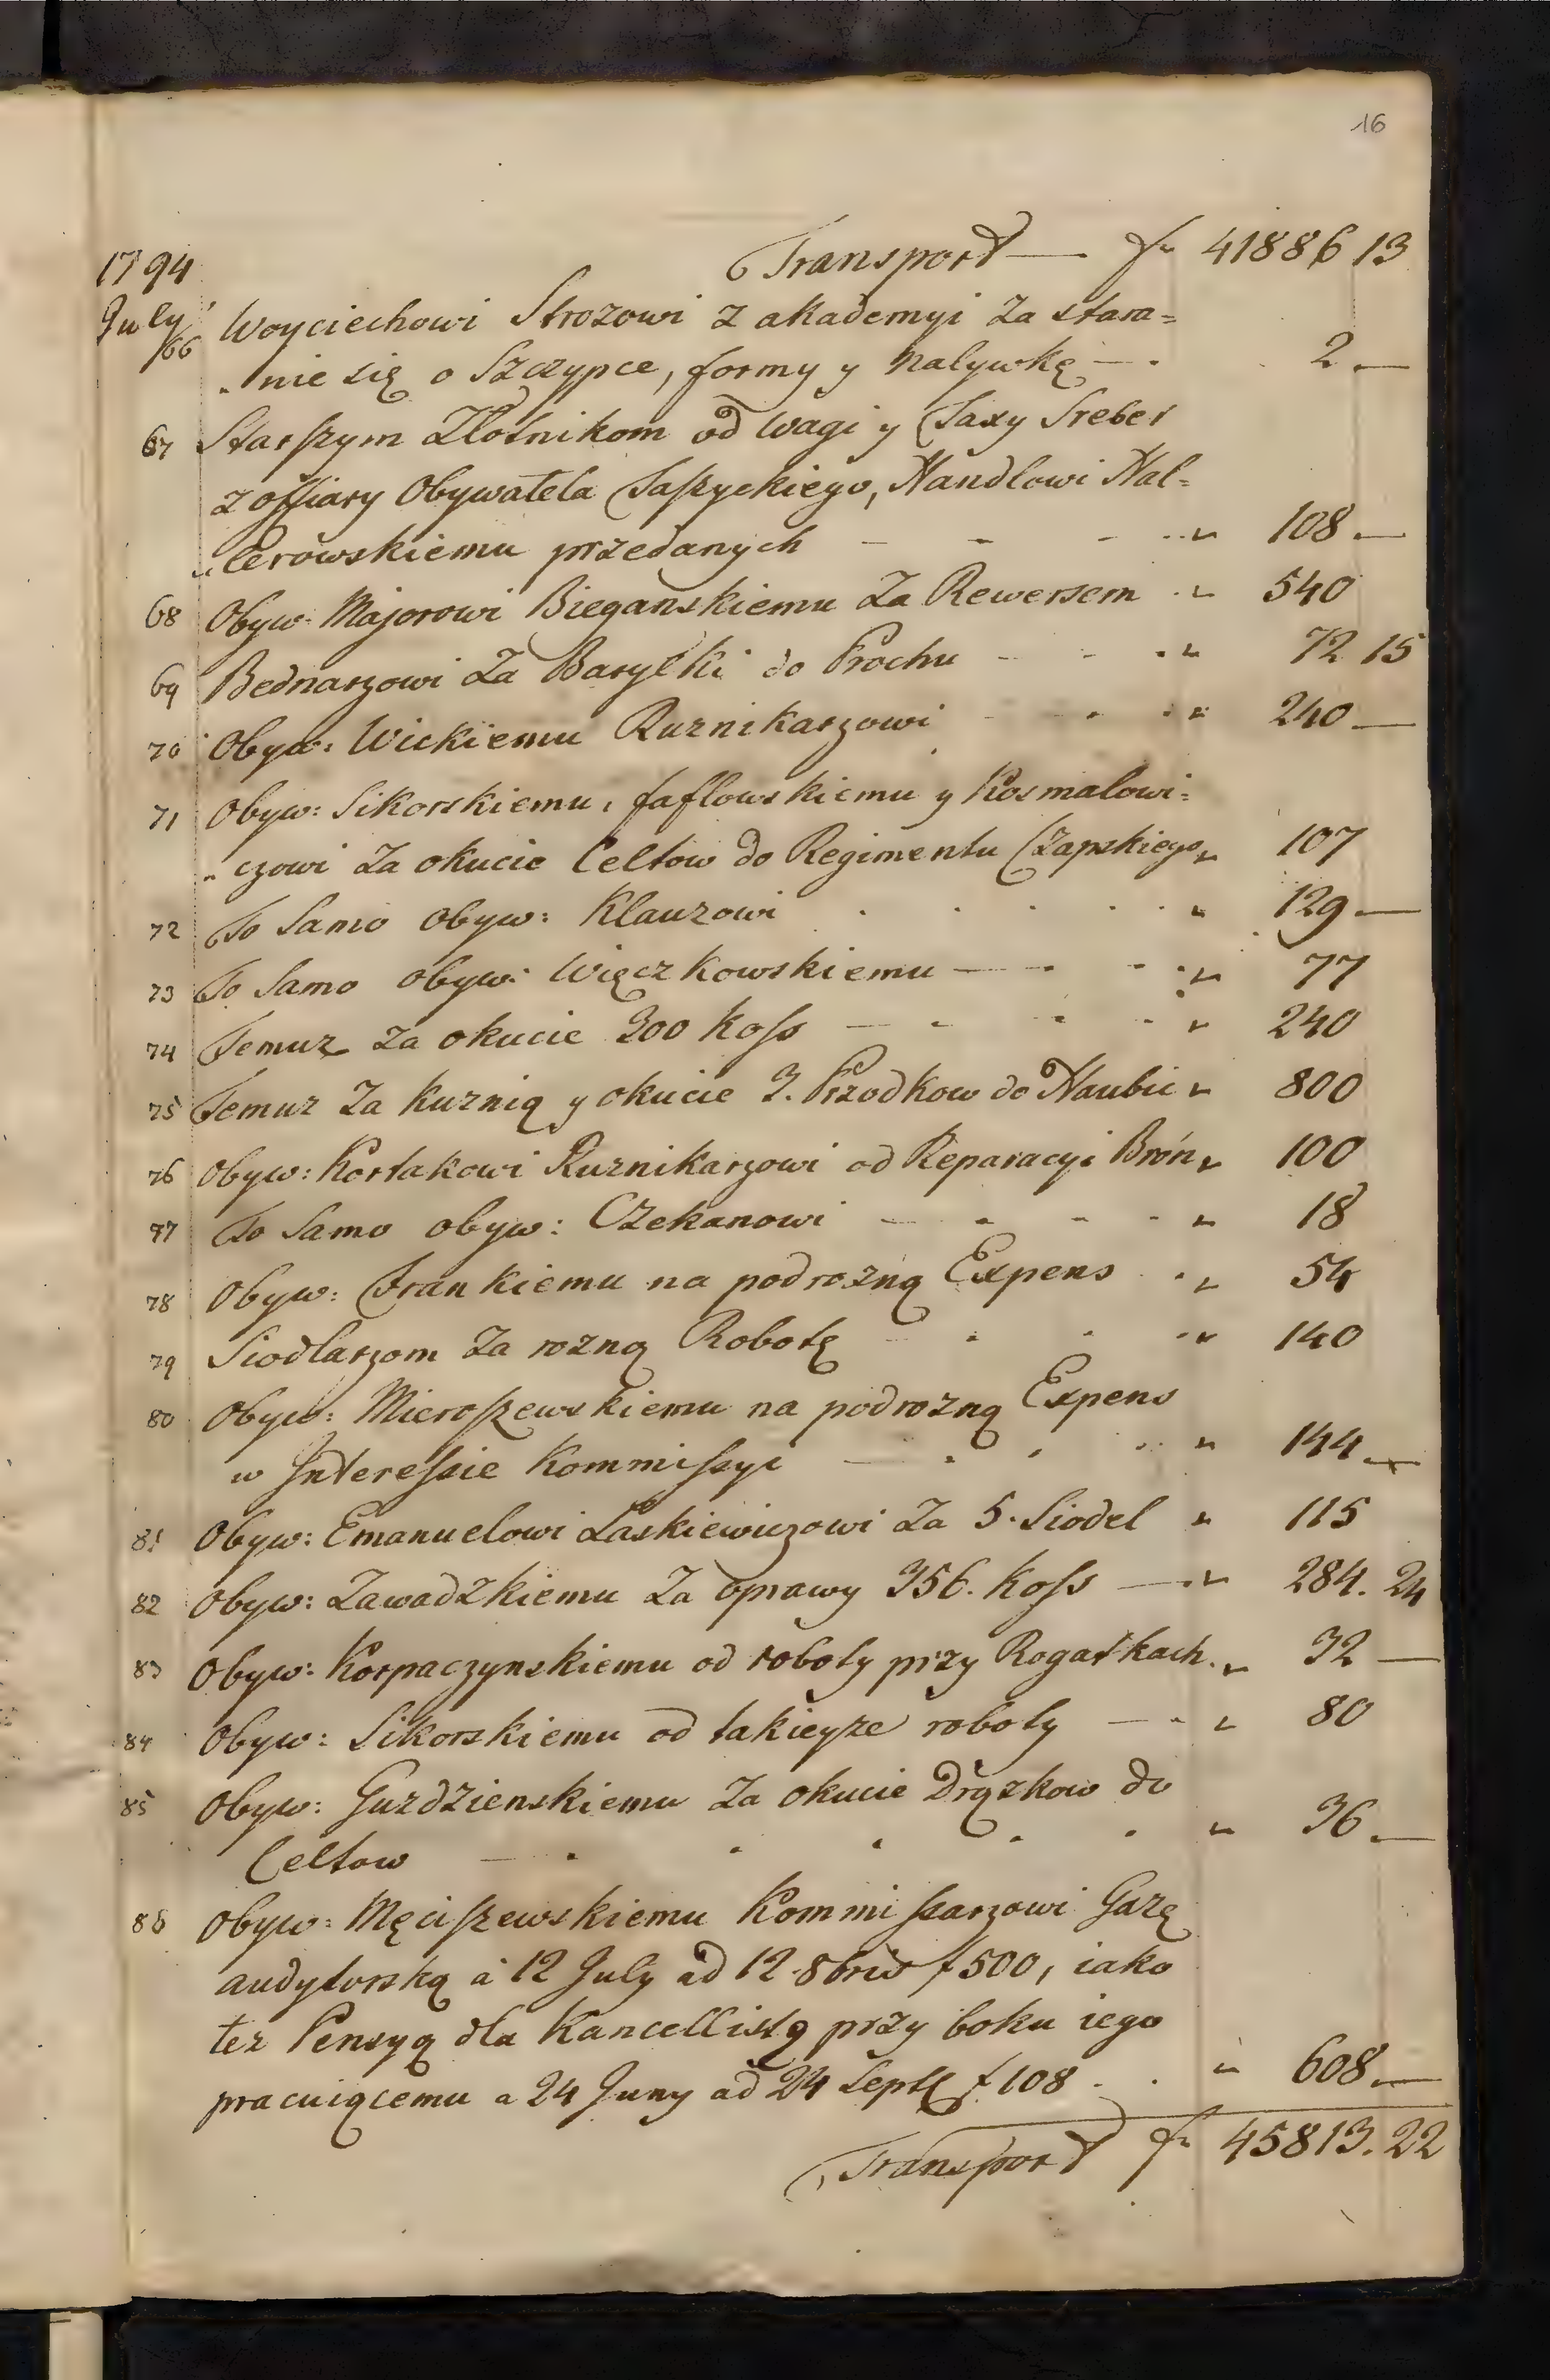 16
1794 Transport — f 41886 13
July 66 Woyciechowi Strozowi z akademyi za stara=
„nie się o Szczypce, formy y nalywkę — . 2 —
67 Starszym Złotnikom od wagi y Taxy Sreber
z offiary Obywatela Taszyckiego, Handlowi Hal=
„lerowskiemu przedanych - - - „ 108 —
68 Obyw: Majorowi Bieganskiemu Za Rewersem „ 540
69 Bednarzowi Za Baryłki do Prochu - - „ 72 15
70 Obyw: Wickiemu Rusnikarzowi - - „ 240 —
71 Obyw: Sikorskiemu, faflowskiemu y Kosmalowi=
„czowi Za okucie Celtow do Regimentu Czapskiego „ 107
72 To Samo Obyw: Klauzowi . . . . „ 129 —
73 To Samo obyw: Więczkowskiemu — - - „ 77
74 Temuz za okucie 300 Koss — - - - „ 240
75 Temuz Za kuznią y okucie 3. Przodkow do Haubic „ 800
76 Obyw: Kortakowi Ruznikarzowi od Reparacyi Broń „ 100
77 To Samo obyw: Czekanowi — - - - „ 18
78 Obyw: Frankiemu na podrozną Expens . „ 54
79 Siodlarzom Za rozną Robotę - - - „ 140
80 Obyw: Mieroszewskiemu na podrozną Expens
w Interessie Kommissyi — . . . „ 144 —
81 Obyw: Emanuelowi Laskiewiczowi Za 5. Siodel „ 115
82 Obyw: Zawadzkiemu Za oprawy 356. Koss — „ 284. 24
83 Obyw: Korpaczynskiemu od roboty przy Rogatkach. „ 32 —
84 Obyw: Sikorskiemu od takieyze roboty — - „ 80
85 Obyw: Guzdzienskiemu Za okucie Drązkow do
Celtow — . . . . . „ 36 —
86 Obyw: Męciszewskiemu Kommissarzowi Gazę
audytorską a 12 July ad 12 8bris f 500, iako
tez Pensyą dla Kancellistę przy boku iego
pracuiącemu a 24 Juny ad 24 Septr f 108 . . „ 608 —
Transport f 45813. 22